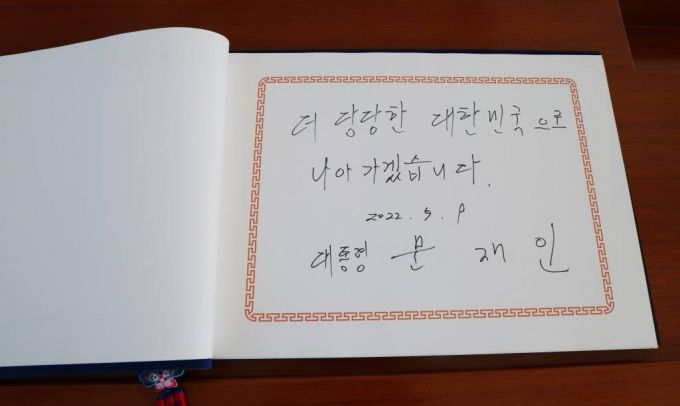 더 당당한 대한민국으로
나아가겠습니다.
2022. 5. 9
대통령 문 재 인